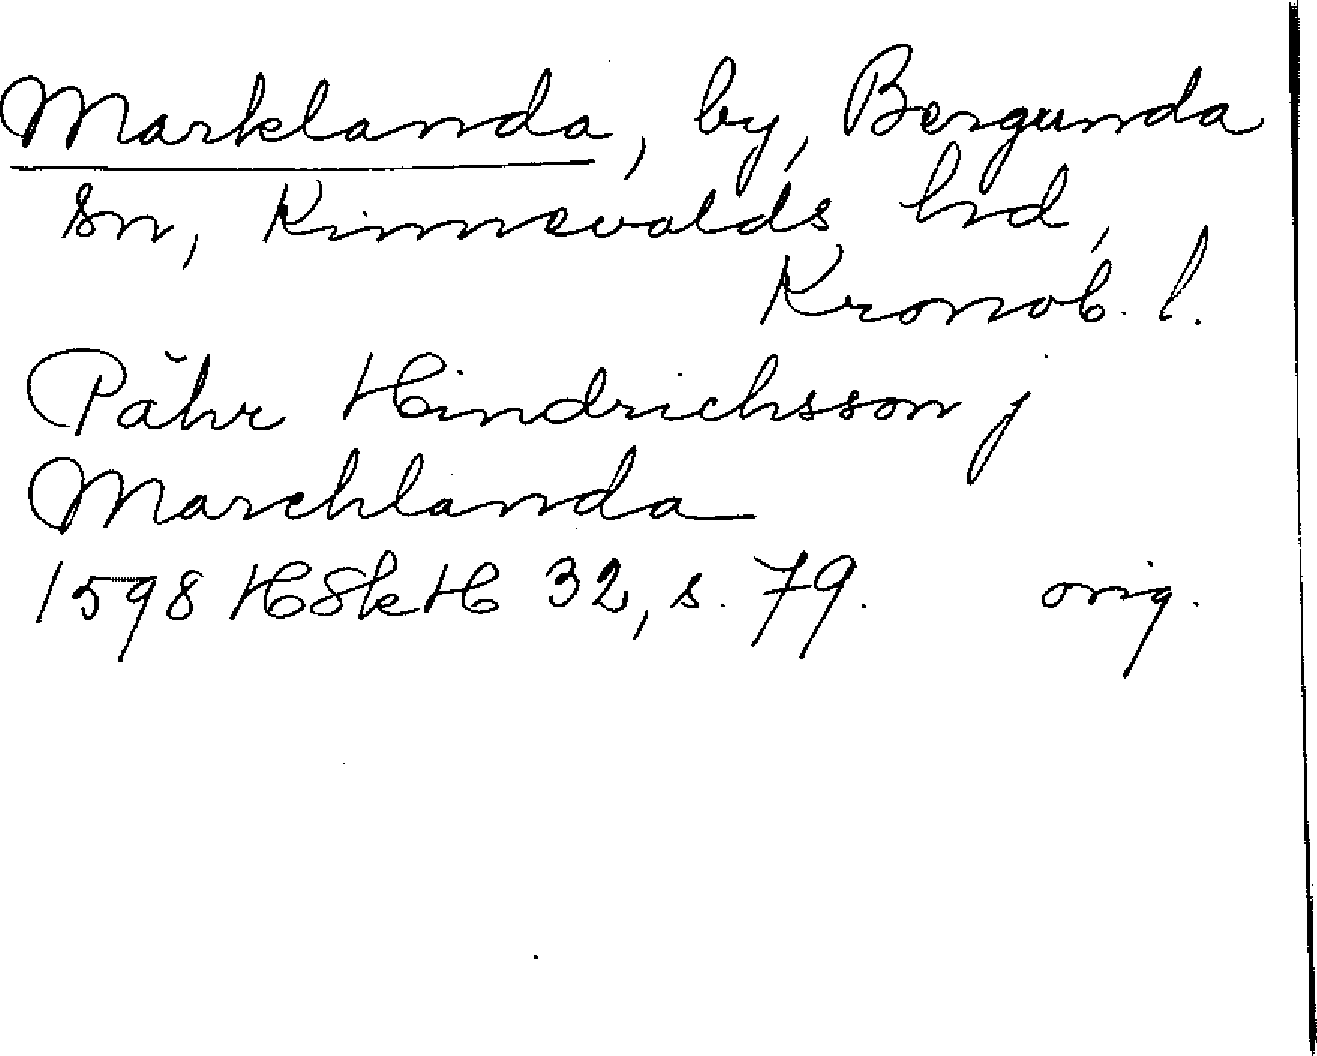 Marklanda, by, Bergunda
sn, Kinnevalds hd,
Kronob. l.
Påhr Hindrichsson j
Marchlanda
1598 HSkH 32, s. 79. orig.